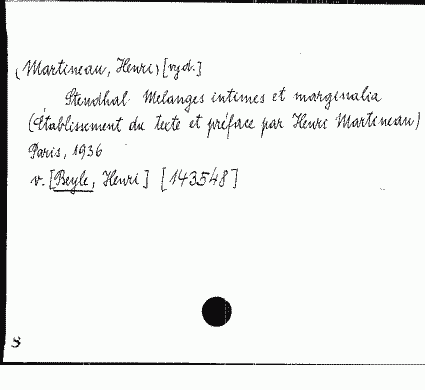 (Martineau, Henri) [vyd.]
Stendhal. Melanges intimes et marginalia
(Établissement du texte et préface par Henri Martineau)
Paris, 1936
v. [Beyle, Henri] [143548]
S